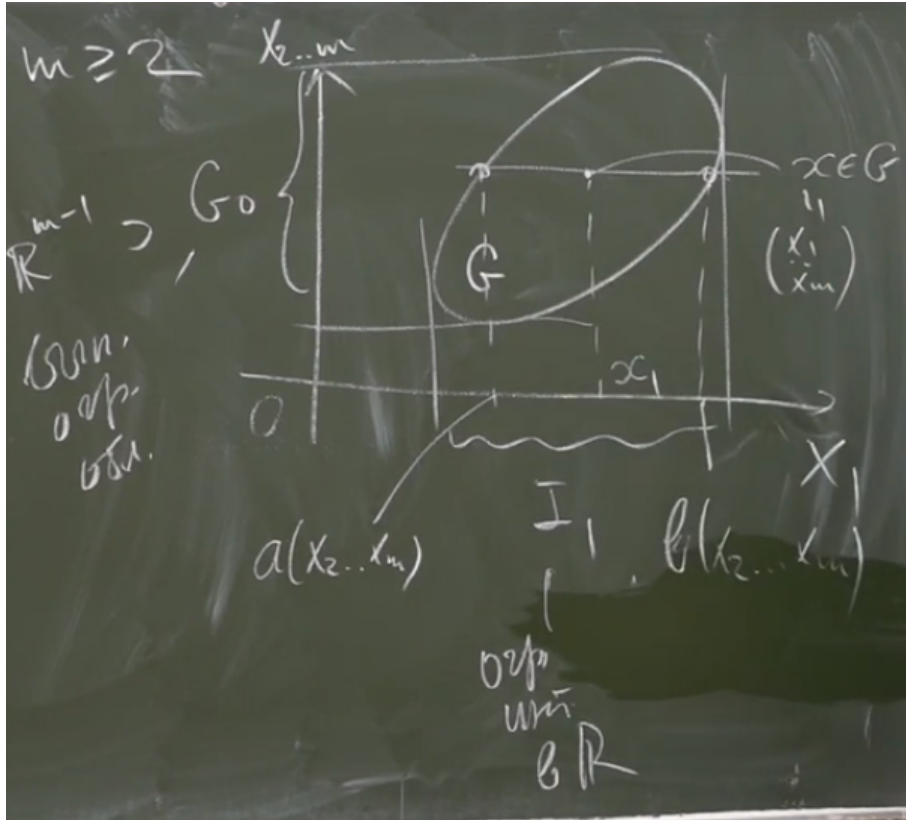 m ≥ 2
x₂..m
G₀
ℝᵐ⁻¹ ⊃
вып.
огр.
обл.
G
x ∈ G
(x₁ .. xₘ)
x₁
O
X₁
a(x₂..xₘ)
I₁
b(x₂...xₘ)
огр
инт.
в ℝ